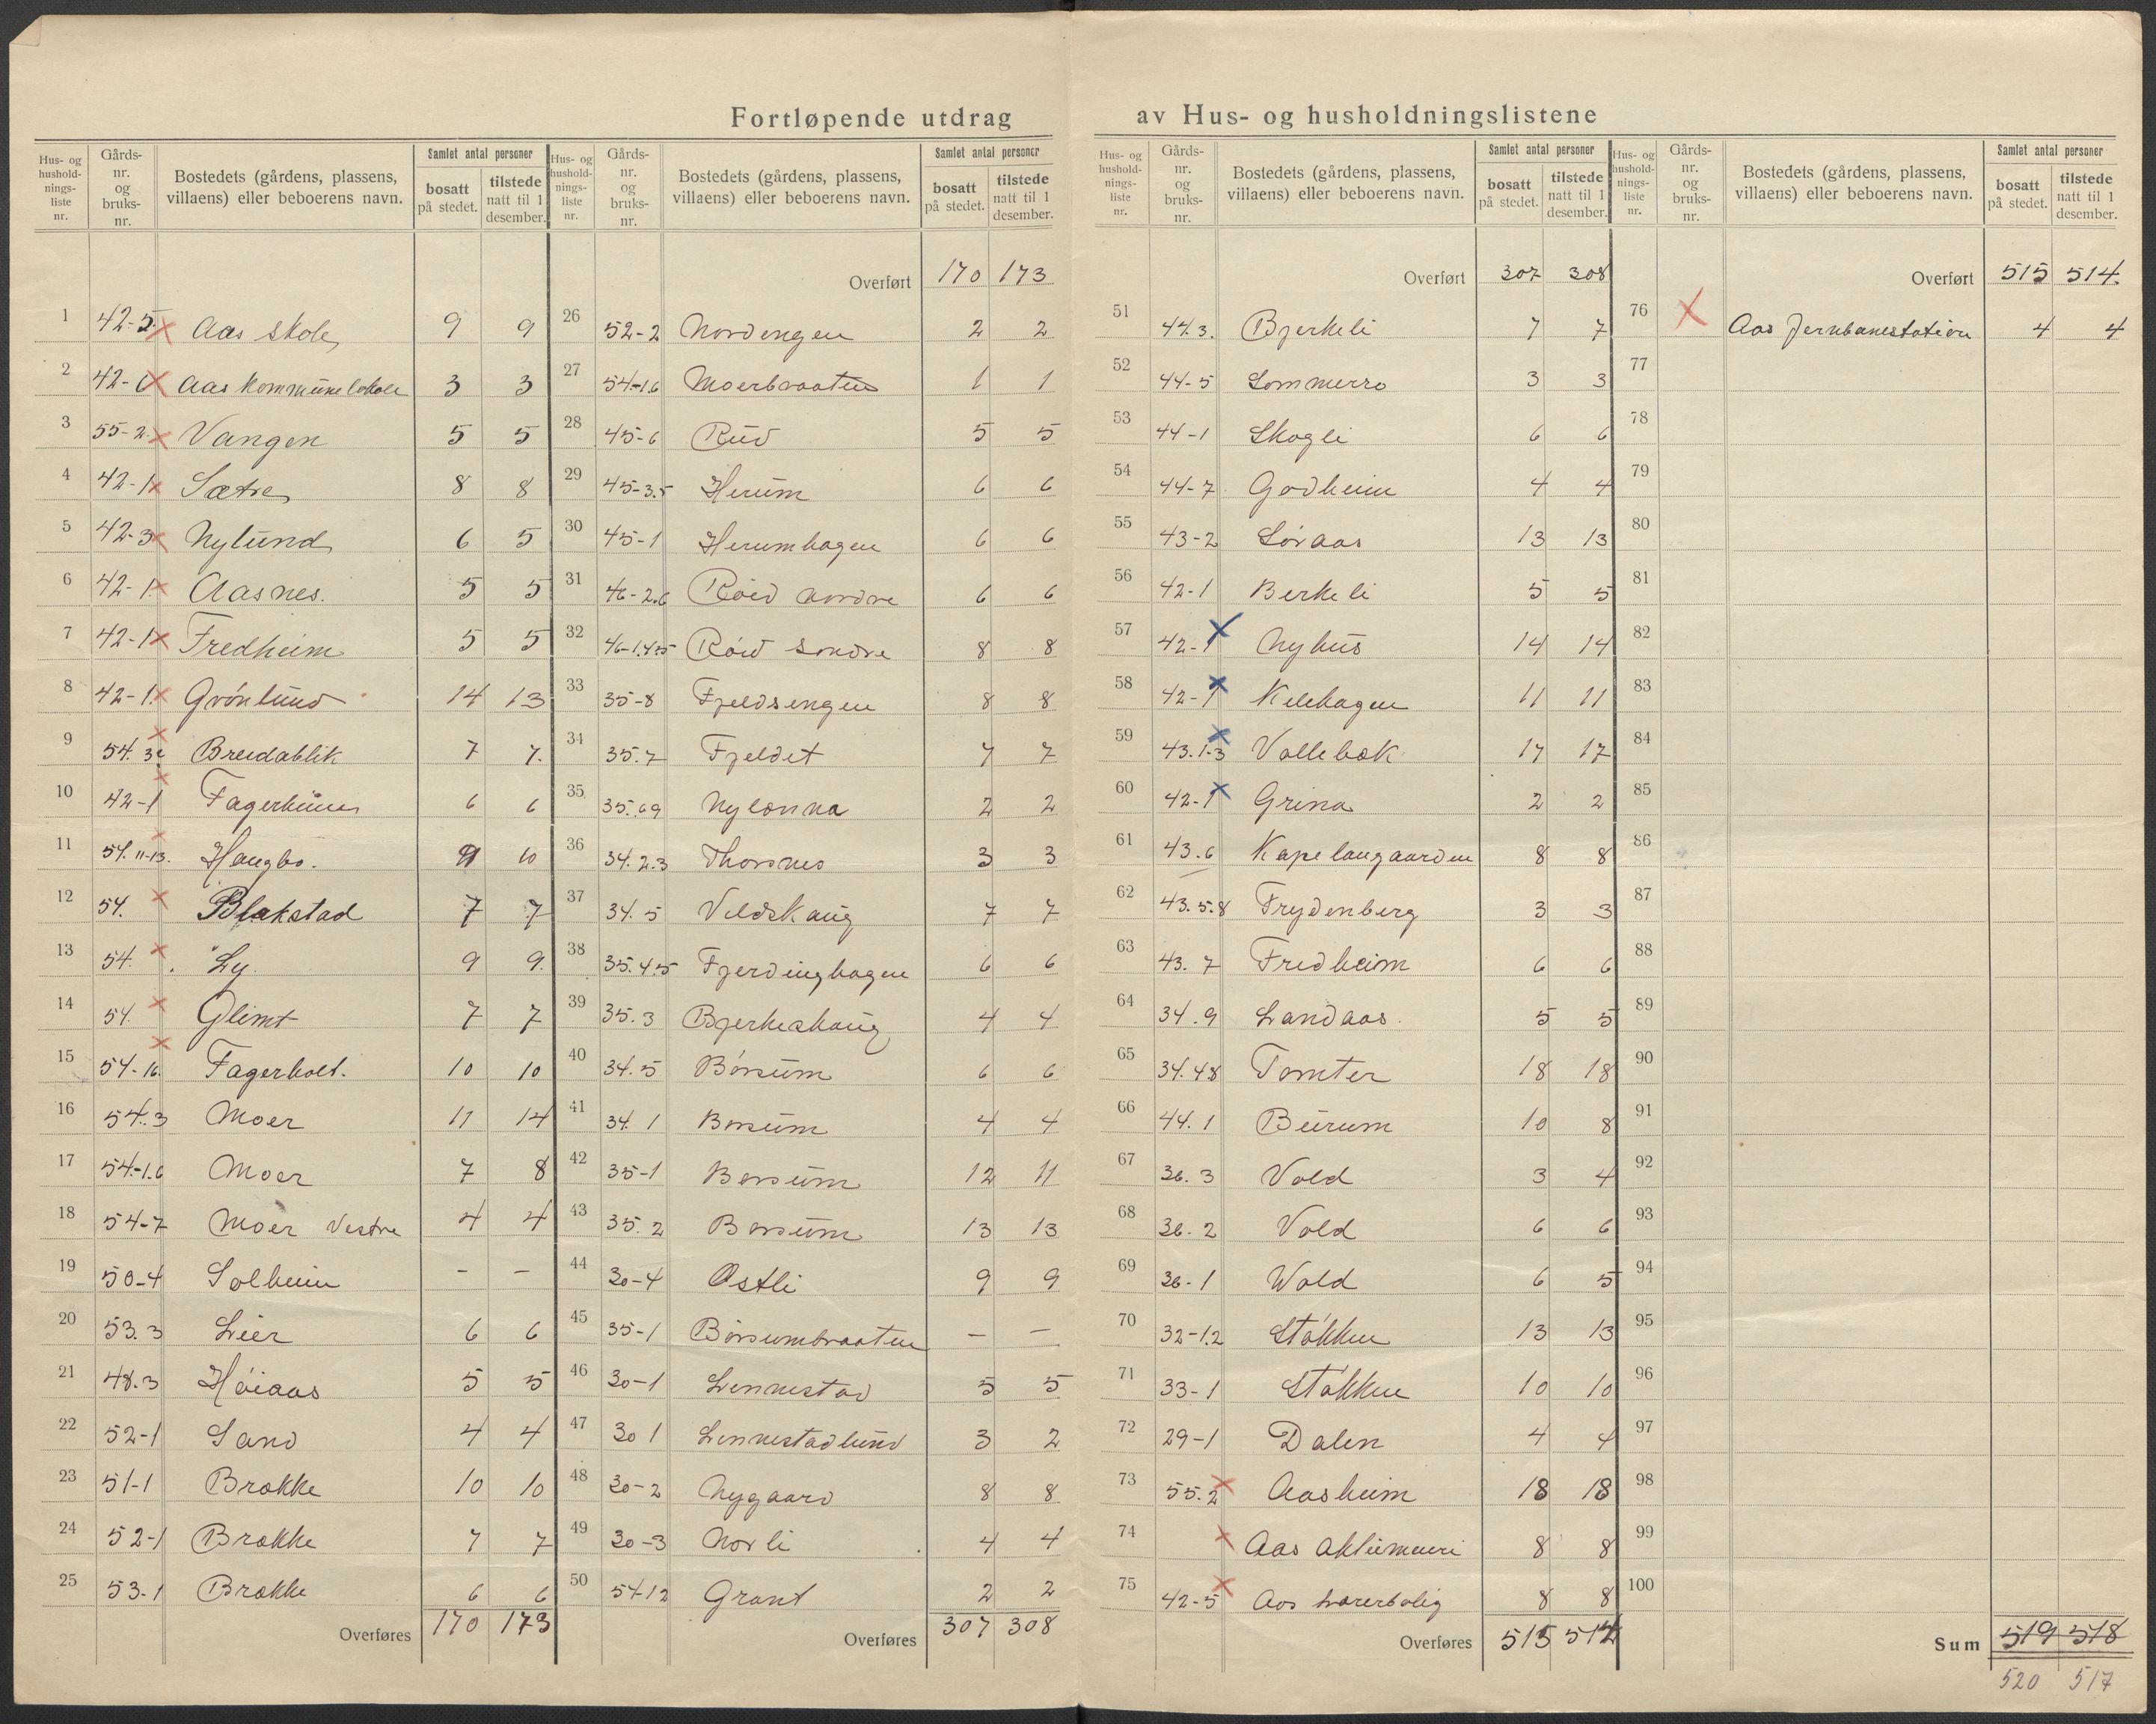 Fortløpende utdrag av Hus- og husholdningslistene
Hus- og husholdnings-liste nr. | Gårds-nr. og bruks-nr. | Bostedets (gårdens, plassens, villaens) eller beboerens navn. | Samlet antal personer | bosatt på stedet. | tilstede natt til 1 desember.
1 42-5 Aas skole 9 9
2 42-6 Aas kommunelokale 3 3
3 55-2 Vangen 5 5
4 42-1 Sætre 8 8
5 42-3 Nylund 6 5
6 42-1 Aasnes. 5 5
7 42-1 Fredheim 5 5
8 42-1 Grønlund 14 13
9 54.3 Breidablik 7 7.
10 42-1 Fagerheim 6 6
11 54.11-13. Haugbo. 10
12 54. Blakstad 7 7
13 54. Ly. 9 9.
14 54. Glimt 7 7
15 54-16. Fagerholt. 10 10
16 54.3 Moer 11 14
17 54-1.6 Moer 7 8
18 54-7 Moer Vestre 4 4
19 50-4 Solheim - -
20 53.3 Lier 6 6
21 48.3 Høiaas 5 5
22 52-1 Sand 4 4
23 51-1 Brække 10 10
24 52-1 Brække 7 7
25 53-1 Brække 6 6
Overføres 170 173
Hus- og husholdnings-liste nr. | Gårds-nr. og bruks-nr. | Bostedets (gårdens, plassens, villaens) eller beboerens navn. | Samlet antal personer | bosatt på stedet. | tilstede natt til 1 desember.
Overført 170 173
26 52-2 Nordengen 2 2
27 54-1.6 Moerbraaten 1 1
28 45-6 Rud 5 5
29 45-3.5 Herum 6 6
30 45-1 Herumhagen 6 6
31 46-2.6 Røed nordre 6 6
32 46-1.4.5 Røed søndre 8 8
33 35-8 Fjeldsengen 8 8
34 35.7 Fjeldet 7 7
35 35.69 Nylænna 2 2
36 34.2.3 Thorsnes 3 3
37 34.5 Veldskaug 7 7
38 35.4.5 Fjerdinghagen 6 6
39 35.3 Bjerkeskaug 4 4
40 34.5 Børsum 6 6
41 34.1 Børsum 4 4
42 35-1 Børsum 12 11
43 35.2 Børsum 13 13
44 30-4 Østli 9 9
45 35-1 Børsumbraaten - -
46 30-1 Lennestad 5 5
47 30 1 Lennestadlund 3 2
48 30-2 Nygaard 8 8
49 30-3 Norli 4 4
50 54-12 Grant 2 2
Overføres 307 308
Hus- og husholdnings-liste nr. | Gårds-nr. og bruks-nr. | Bostedets (gårdens, plassens, villaens) eller beboerens navn. | Samlet antal personer | bosatt på stedet. | tilstede natt til 1 desember.
Overført 307 308
51 44.3. Bjerkeli 7 7
52 44-5 Sommerro 3 3
53 44-1 Skogli 6 6
54 44-7 Godheim 4 4
55 43-2 Søraas 13 13
56 42-1 Berkeli 5 5
57 42-1 Nyhus 14 14
58 42-1 Kilehagen 11 11
59 43.1-3 Vollebæk 17 17
60 42-1 Grina 2 2
61 43.6 Kapelangaarden 8 8
62 43.5.8 Frydenberg 3 3
63 43.7 Fredheim 6 6
64 34.9 Landaas. 5 5
65 34.48 Tomter 18 18
66 44.1 Burum 10 8
67 36.3 Vold 3 4
68 36.2 Vold 6 6
69 36-1 Wold 6 5
70 32-1.2 Støkken 13 13
71 33-1 Støkken 10 10
72 29-1 Dalen 4 4
73 55.2 Aasheim 18 18
74 Aas Aktiemeieri 8 8
75 42-5 Aas Lærerbolig 8 8
Overføres 515 514
Hus- og husholdnings-liste nr. | Gårds-nr. og bruks-nr. | Bostedets (gårdens, plassens, villaens) eller beboerens navn. | Samlet antal personer | bosatt på stedet. | tilstede natt til 1 desember.
Overført 515 514.
76 Aas Jernbanestation 4 4
77
78
79
80
81
82
83
84
85
86
87
88
89
90
91
92
93
94
95
96
97
98
99
100
Sum 519 518
520 517